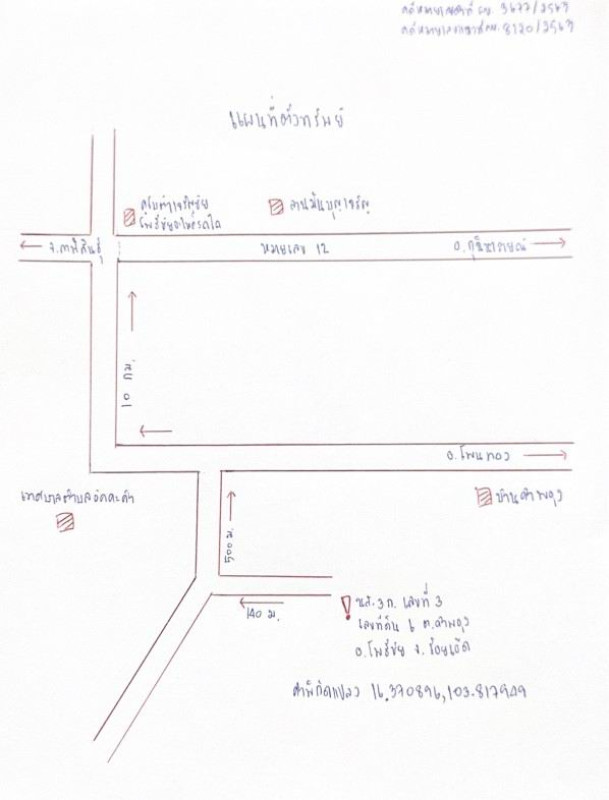 คดีหมายเลขดำที่ ผบ. 3677/2563
คดีหมายเลขแดงที่ ผบ. 8120/2563
แผนที่ตัวทรัพย์
โพธิ์ชัยอะไหล่รถไถ
ลานมันบุญเจริญ
จ.กาฬสินธุ์
หมายเลข 12
อ.กุฉินารายณ์
10 กม.
อ.โพนทอง
เทศบาลตำบลอัคคะคำ
บ้านคำพอุง
500 ม.
140 ม.
นส.3ก. เลขที่ 3
เลขที่ดิน 6 ต.คำพอุง
อ.โพธิ์ชัย จ.ร้อยเอ็ด
ค่าพิกัดแปลง 16.370896,103.817949